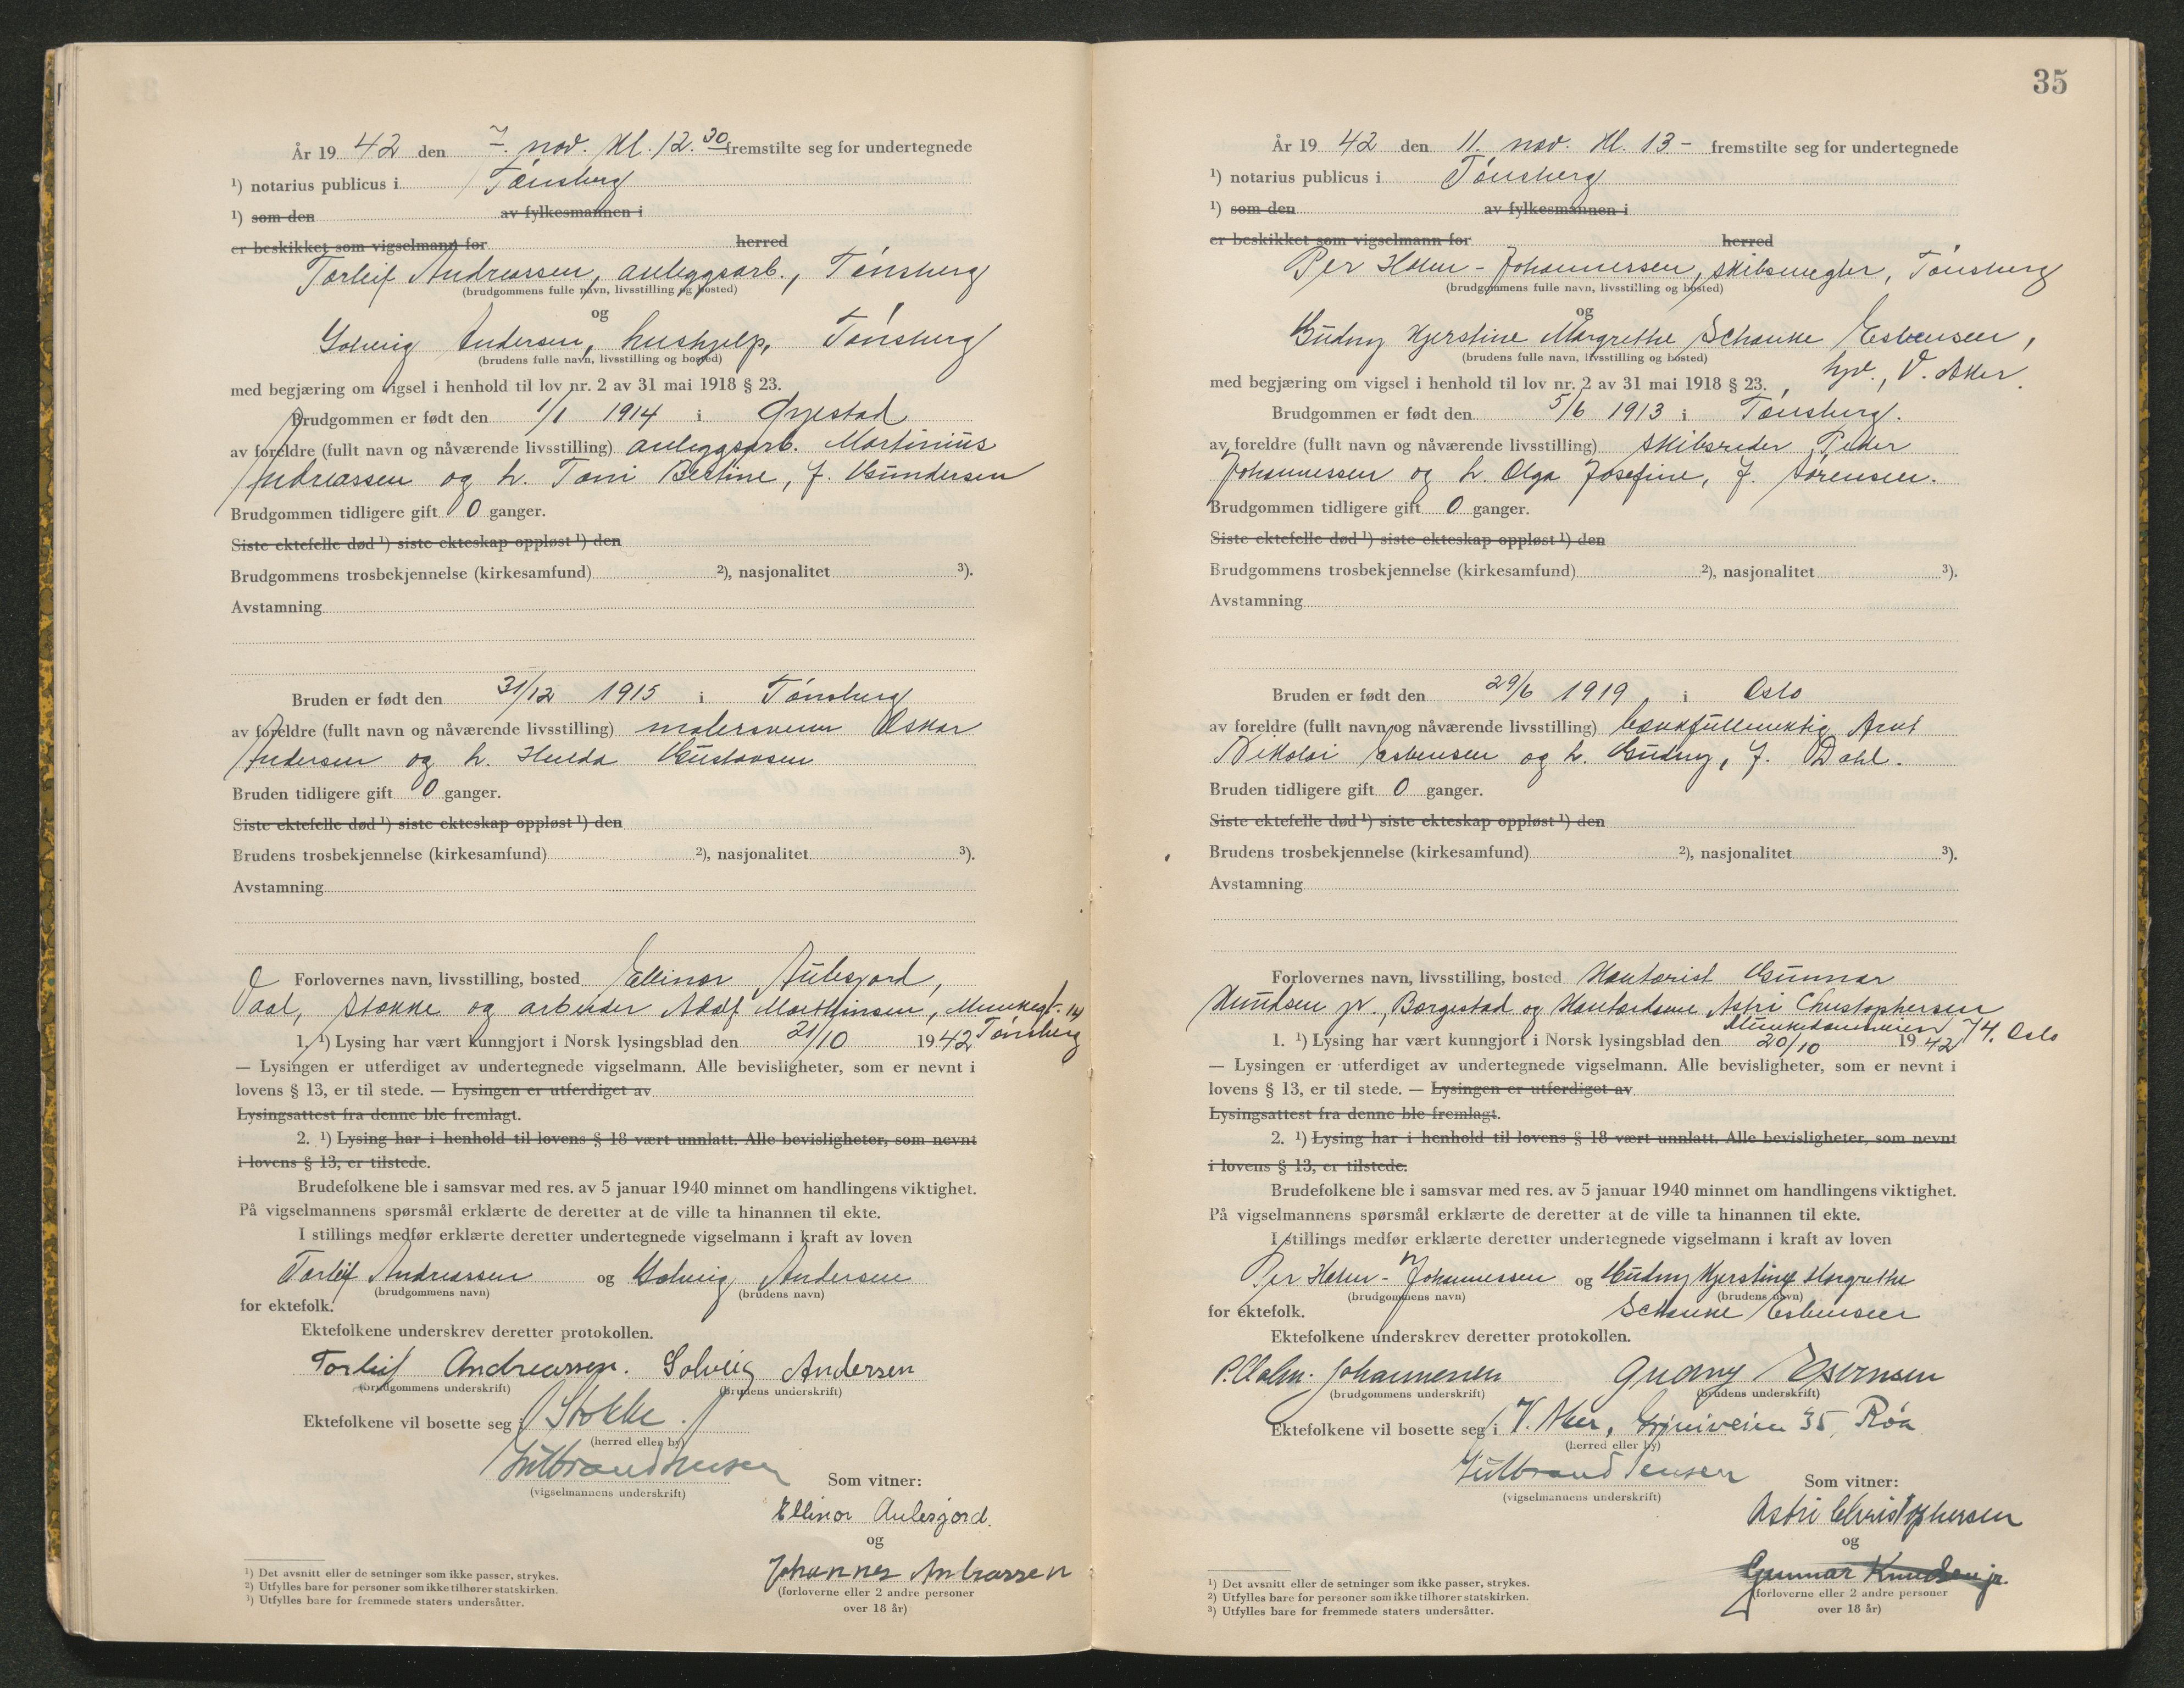 År 19 42 den 7. nov. kl. 12.30 fremstilte seg for undertegnede
1) notarius publicus i Tønsberg
1) som den av fylkesmannen i
er beskikket som vigselmann for herred
Torleif Andreassen, anleggsarb., Tønsberg
(brudgommens fulle navn, livsstilling og bosted)
og
Solveig Andersen, hushjelp, Tønsberg
(brudens fulle navn, livsstilling og bosted)
med begjæring om vigsel i henhold til lov nr. 2 av 31 mai 1918 § 23.
Brudgommen er født den 1/1 1914 i Øyestad
av foreldre (fullt navn og nåværende livsstilling) anleggsarb. Martinius
Andreassen og h. Toni Bertine, f. Gundersen
Brudgommen tidligere gift 0 ganger.
Siste ektefelle død 1) siste ekteskap oppløst 1) den
Brudgommens trosbekjennelse (kirkesamfund) 2), nasjonalitet 3).
Avstamning
Bruden er født den 31/12 1915 i Tønsberg
av foreldre (fullt navn og nåværende livsstilling) malersvenn Oskar
Andersen og h. Hulda Gustavsen
Bruden tidligere gift 0 ganger.
Siste ektefelle død 1) siste ekteskap oppløst 1) den
Brudens trosbekjennelse (kirkesamfund) 2), nasjonalitet 3).
Avstamning
Forlovernes navn, livsstilling, bosted Ellinor Aulesjord,
Vaal, Stokke og arbeider Adolf Martinsen, Munkegt. 14
Tønsberg
1. 1) Lysing har vært kunngjort i Norsk lysingsblad den 21/10 1942
— Lysingen er utferdiget av undertegnede vigselmann. Alle bevisligheter, som er nevnt i
lovens § 13, er til stede. — Lysingen er utferdiget av
Lysingsattest fra denne ble fremlagt.
2. 1) Lysing har i henhold til lovens § 18 vært unnlatt. Alle bevisligheter, som nevnt
i lovens § 13, er tilstede.
Brudefolkene ble i samsvar med res. av 5 januar 1940 minnet om handlingens viktighet.
På vigselmannens spørsmål erklærte de deretter at de ville ta hinannen til ekte.
I stillings medfør erklærte deretter undertegnede vigselmann i kraft av loven
Torleif Andreassen og Solveig Andersen
(brudgommens navn) (brudens navn)
for ektefolk.
Ektefolkene underskrev deretter protokollen.
Torleif Andreassen. Solveig Andersen
(brudgommens underskrift) (brudens underskrift)
Ektefolkene vil bosette seg i Stokke.
(herred eller by)
Gulbrand Jensen
(vigselmannens underskrift)
Som vitner:
Ellinor Aulesjord.
og
Johannes Andreassen
(forloverne eller 2 andre personer
over 18 år)
1) Det avsnitt eller de setninger som ikke passer, strykes.
2) Utfylles bare for personer som ikke tilhører statskirken.
3) Utfylles bare for fremmede staters undersåtter.
35
År 19 42 den 11. nov. kl. 13 - fremstilte seg for undertegnede
1) notarius publicus i Tønsberg
1) som den av fylkesmannen i
er beskikket som vigselmann for herred
Per Holm-Johannessen, skibsmegler, Tønsberg
(brudgommens fulle navn, livsstilling og bosted)
og
Gudny Kjerstine Margrethe Schanke Esbensen,
(brudens fulle navn, livsstilling og bosted)
hjv., V. Aker.
med begjæring om vigsel i henhold til lov nr. 2 av 31 mai 1918 § 23.
Brudgommen er født den 5/6 1913 i Tønsberg.
av foreldre (fullt navn og nåværende livsstilling) skibsreder Peder
Johannessen og h. Olga Josefine, f. Sørensen.
Brudgommen tidligere gift 0 ganger.
Siste ektefelle død 1) siste ekteskap oppløst 1) den
Brudgommens trosbekjennelse (kirkesamfund) 2), nasjonalitet 3).
Avstamning
Bruden er født den 29/6 1919 i Oslo
av foreldre (fullt navn og nåværende livsstilling) bankfullmektig Arnt
Nikolai Esbensen og h. Gudny, f. Dahl.
Bruden tidligere gift 0 ganger.
Siste ektefelle død 1) siste ekteskap oppløst 1) den
Brudens trosbekjennelse (kirkesamfund) 2), nasjonalitet 3).
Avstamning
Forlovernes navn, livsstilling, bosted Kontorist Gunnar
Knudsen jr., Borgestad og Kontordame Astri Christophersen
Munkedamsveien 74. Oslo
1. 1) Lysing har vært kunngjort i Norsk lysingsblad den 20/10 1942
— Lysingen er utferdiget av undertegnede vigselmann. Alle bevisligheter, som er nevnt i
lovens § 13, er til stede. — Lysingen er utferdiget av
Lysingsattest fra denne ble fremlagt.
2. 1) Lysing har i henhold til lovens § 18 vært unnlatt. Alle bevisligheter, som nevnt
i lovens § 13, er tilstede.
Brudefolkene ble i samsvar med res. av 5 januar 1940 minnet om handlingens viktighet.
På vigselmannens spørsmål erklærte de deretter at de ville ta hinannen til ekte.
I stillings medfør erklærte deretter undertegnede vigselmann i kraft av loven
Per Holm-Johannessen og Gudny Kjerstine Margrethe
(brudgommens navn) (brudens navn)
for ektefolk. Schanke Esbensen
Ektefolkene underskrev deretter protokollen.
P. Holm-Johannessen Gudny Esbensen
(brudgommens underskrift) (brudens underskrift)
Ektefolkene vil bosette seg i V. Aker, Griniveien 35, Røa
(herred eller by)
Gulbrand Jensen
(vigselmannens underskrift)
Som vitner:
Astri Christophersen
og
Gunnar Knudsen jr.
(forloverne eller 2 andre personer
over 18 år)
1) Det avsnitt eller de setninger som ikke passer, strykes.
2) Utfylles bare for personer som ikke tilhører statskirken.
3) Utfylles bare for fremmede staters undersåtter.